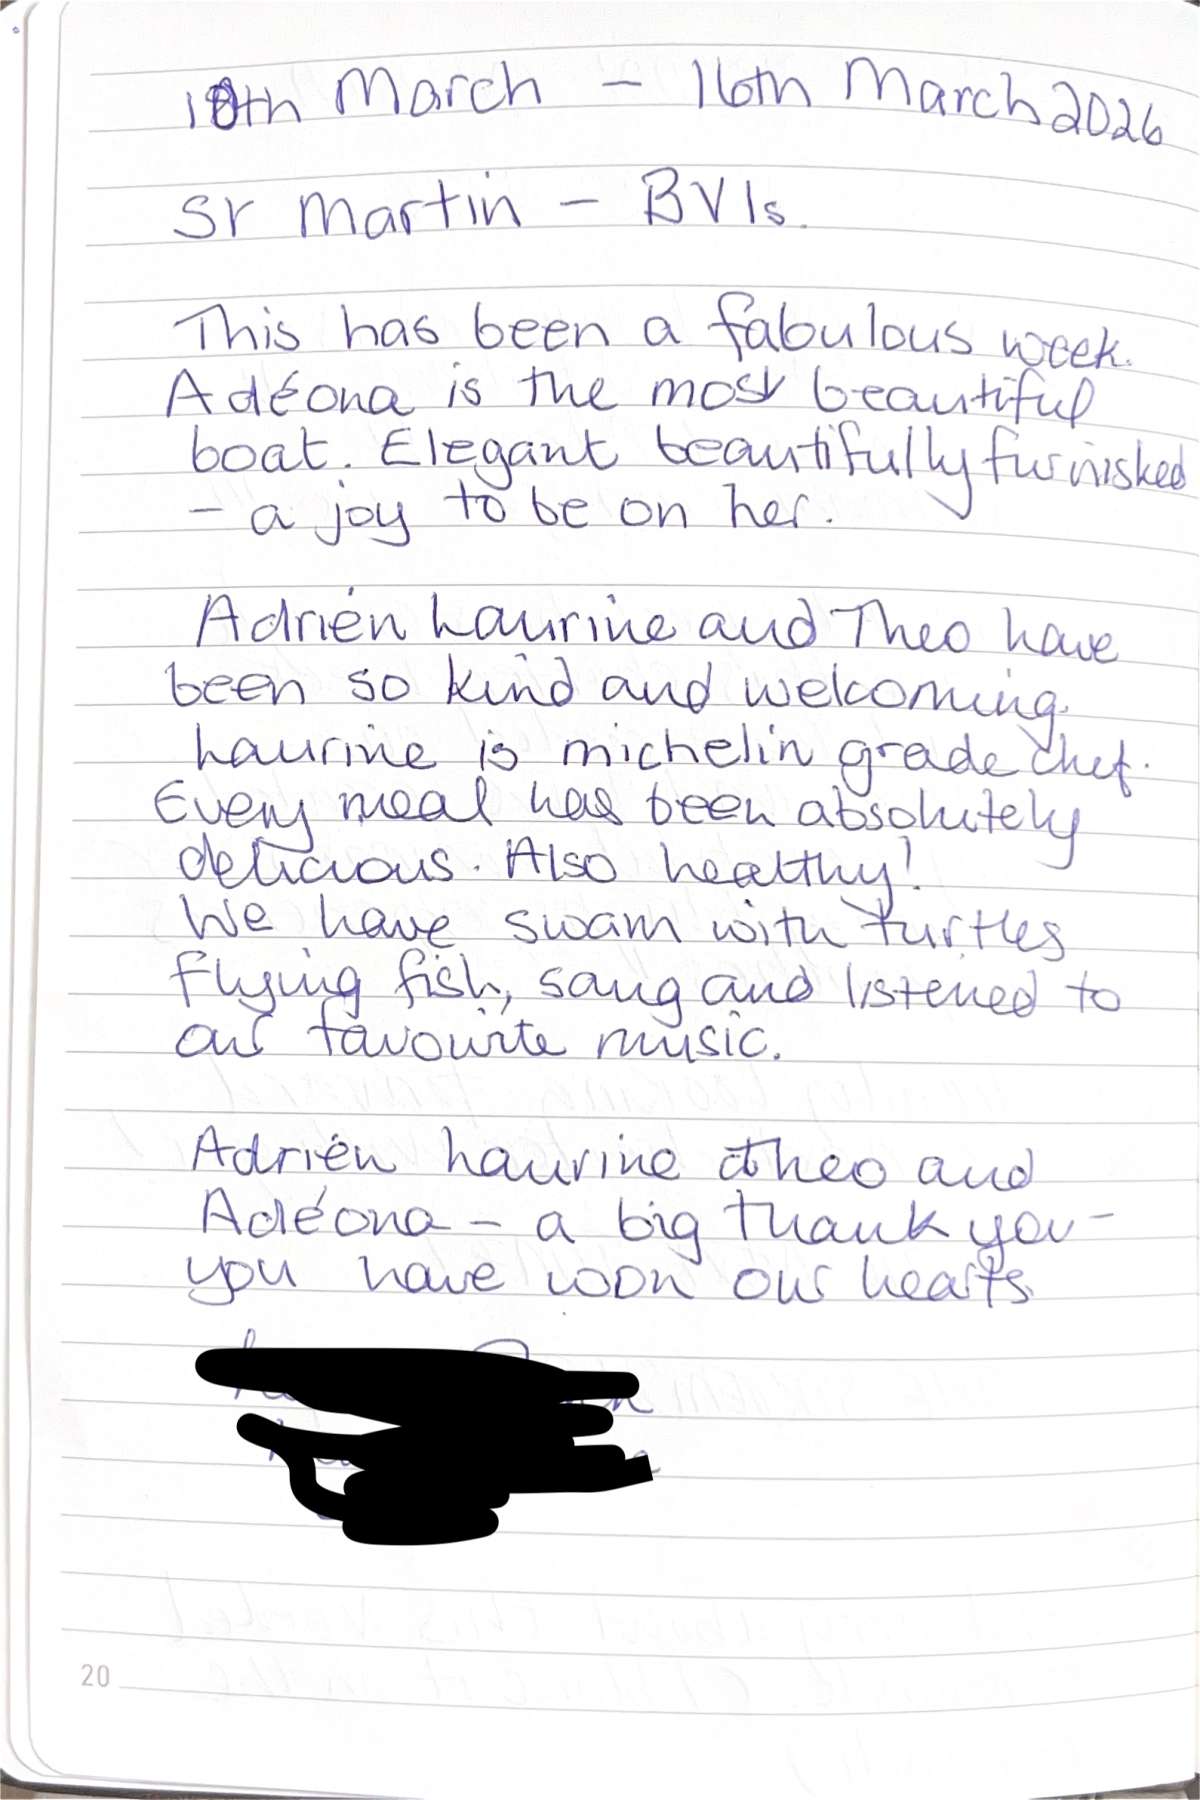 10th March - 16th March 2026
St Martin - BVIs.
This has been a fabulous week.
Adéona is the most beautiful
boat. Elegant beautifully furnished
- a joy to be on her.
Adrién Laurine and Theo have
been so kind and welcoming.
Laurine is michelin grade chef.
Every meal has been absolutely
delicious. Also healthy!
We have swam with turtles
flying fish, sang and listened to
our favourite music.
Adrién Laurine Theo and
Adéona - a big thank you -
you have won our hearts
20